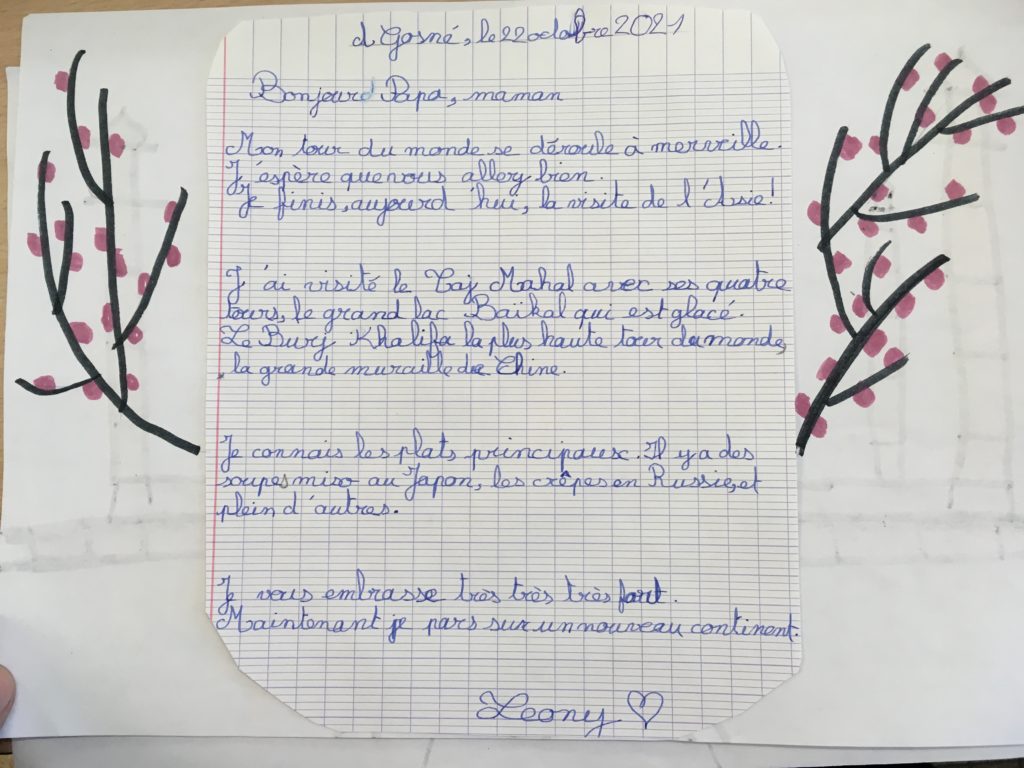 à Gosné, le 22 octobre 2021
Bonjour Papa, maman
Mon tour du monde se déroule à merveille.
J'éspère que vous allez bien.
Je finis, aujourd'hui, la visite de l'Asie!
J'ai visité le Taj Mahal avec ses quatre
tours, le grand lac Baïkal qui est glacé.
Le Burj Khalifa la plus haute tour du monde,
, la grande muraille de Chine.
Je connais les plats principaux. Il y a des
soupes miso au Japon, les crêpes en Russie, et
plein d'autres.
Je vous embrasse très très très fort.
Maintenant je pars sur un nouveau continent.
Leony ♡